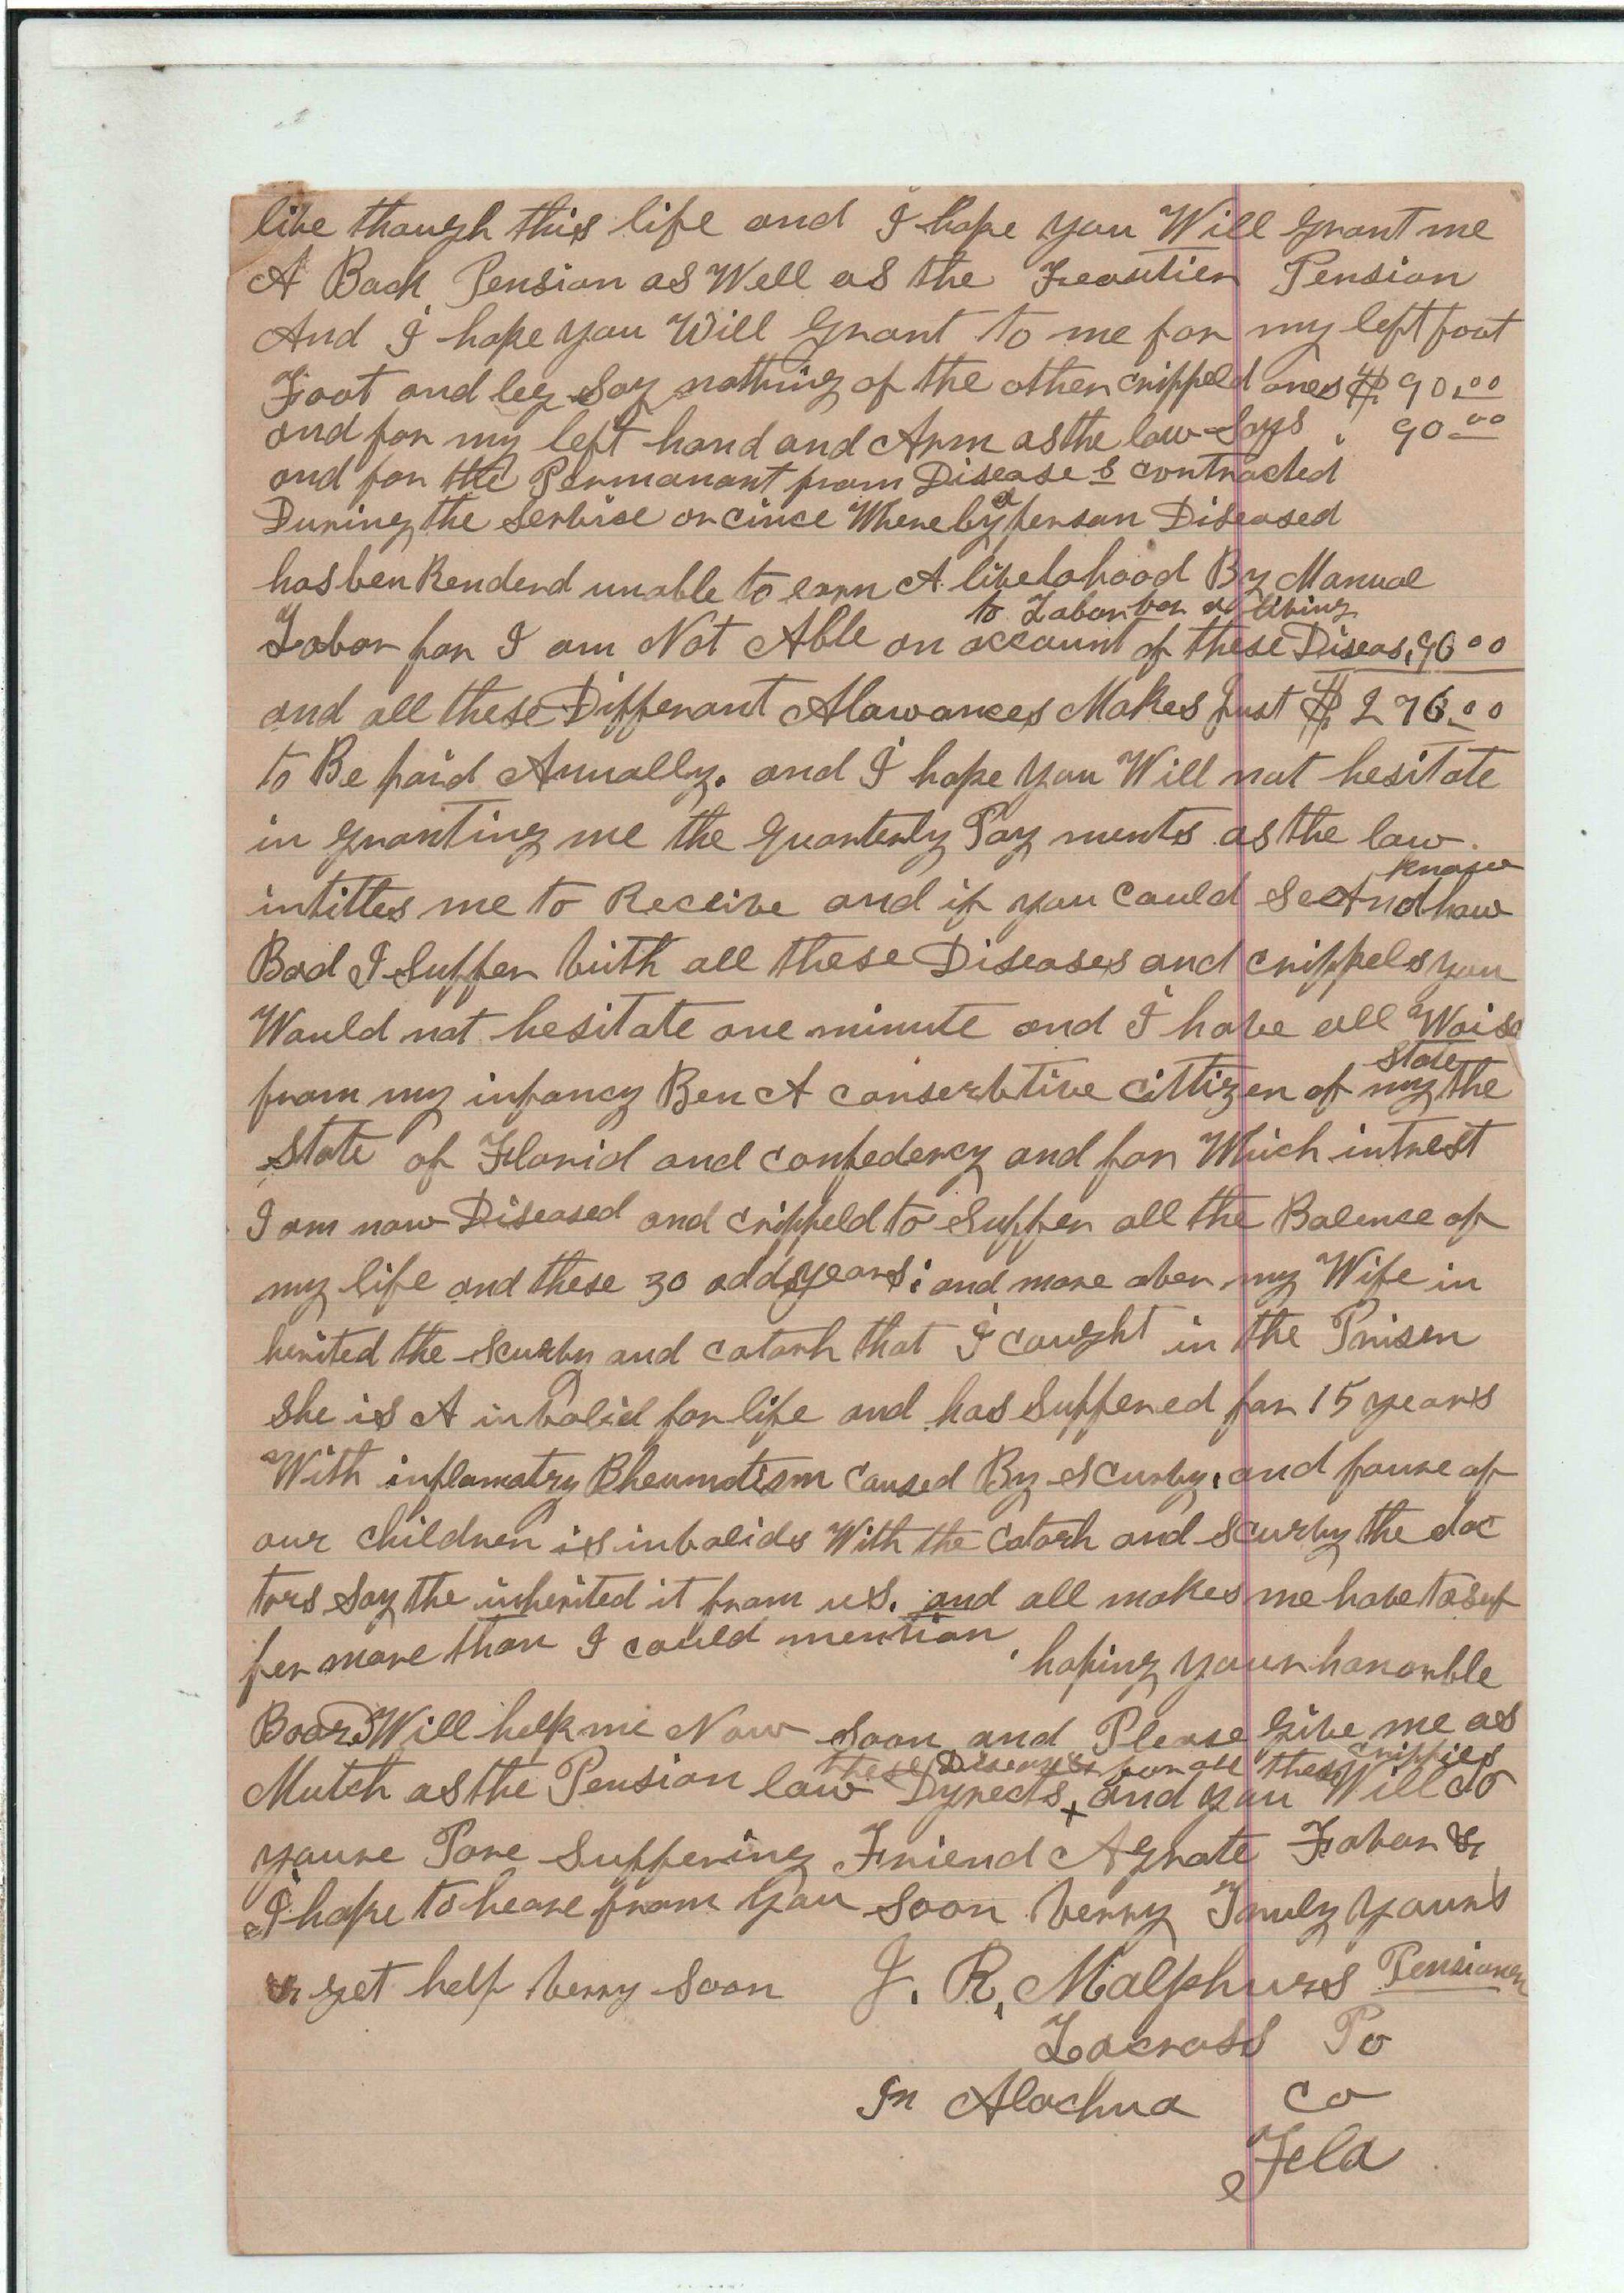 live though this life and I hope you Will grant me
A Back Pension as Well as the Pension
And I hope you Will grant to me for my left foot
Foot and leg Say nothing of the other crippeld ones $90.00
and for my left hand and Arm as the law Says . 90 00
and for the Permanant from Diseases contracted
During the Servise or cince Whereby a person Diseased
has ben Renderd unable to earn A livelohood By Manual
to Labor for a living
Labor for I am Not Able on account of these Diseas, 90 00
and all these Differant Alawances Makes Just $270.00
to Be paid Anually. and I hope you Will not hesitate
in granting me the quarterly Pay ments as the law
know
intittes me to Receive and if you could See And how
Bad I Suffer with all these Diseases and crippels you
Would not hesitate one minute and I have all Waise
State
from my infancy Ben A conserbtive cittizen of my the
State of Florid and confedercy and for Which intrest
I am now Diseased and crippeld to Suffer all the Balence of
my life and these 30 odd years: and more over my Wife in
herited the Scurby and catarh that I caught in the Prisen
She is A invalid for life and has Suffered for 15 years
With inflamatry Rheumatism caused By Scurby, and foure of
our children is invalids With the Catarh and Scurby the doc
tors Say the inherited it from us. and all makes me have to suf
fer more than I could mention
. hoping your honorble
Board Will help me Now Soon and Please give me as
these Diseases for all these cripples
Mutch as the Pension law Dyrects + and you Will do
youre Pore Suffering Friend A grate Favor &
I hope to heare from you Soon verry Truly yours
& get help verry Soon J. R. Malphurs Pensioner
Lacross Po
In Alachua Co
Fela